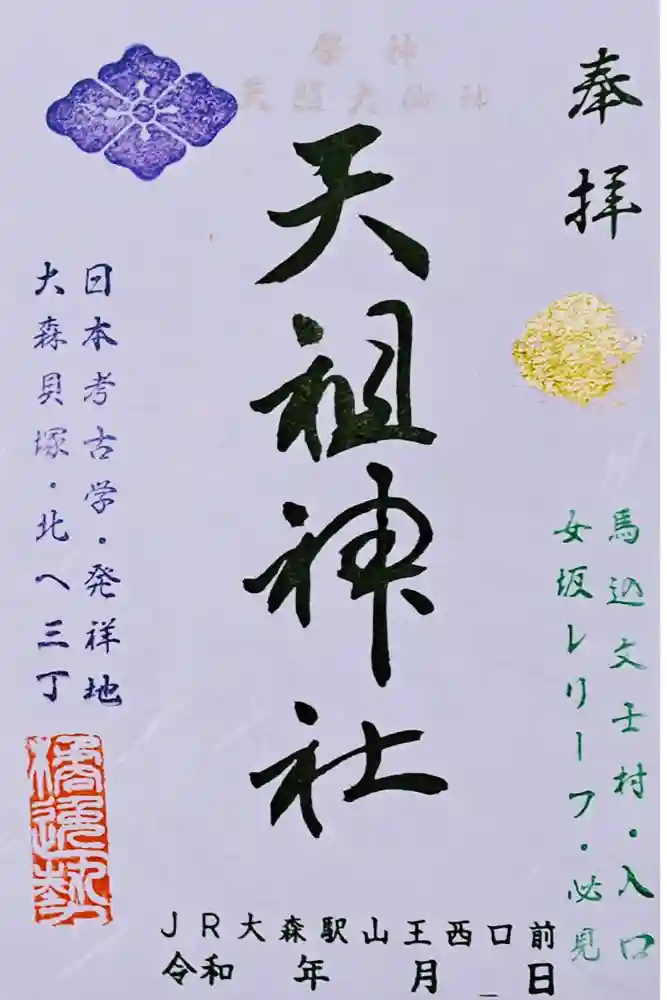 奉拝
祭神
天照大御神
天祖神社
馬込文士村・入口
女坂レリーフ・必見
日本考古学・発祥地
大森貝塚・北へ三丁
JR大森駅山王西口前
令和 年 月 日